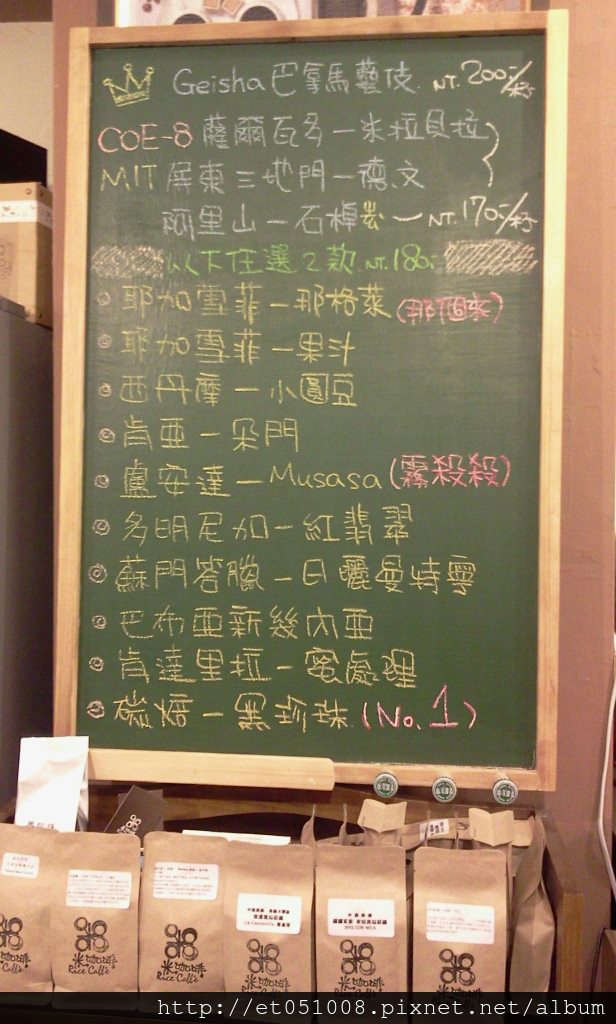 Geisha 巴拿馬藝伎 NT.200-/杯
COE-8 薩爾瓦多-米拉貝拉
MIT 屏東三地門-德文
阿里山-石棹 NT.170-/杯
以下任選2款 NT.180-
耶加雪菲-那格萊(那個來)
耶加雪菲-果汁
西丹摩-小圓豆
肯亞-朵門
盧安達-Musasa(霧殺殺)
多明尼加-紅翡翠
蘇門答臘-日曬曼特寧
巴布亞新幾內亞
肯達里拉-蜜處理
碳焙-黑珍珠(No.1)
米咖啡
Rice Caffe
米咖啡
Rice Caffe
米咖啡
米咖啡
米咖啡
http://et051008.pixnet.net/album